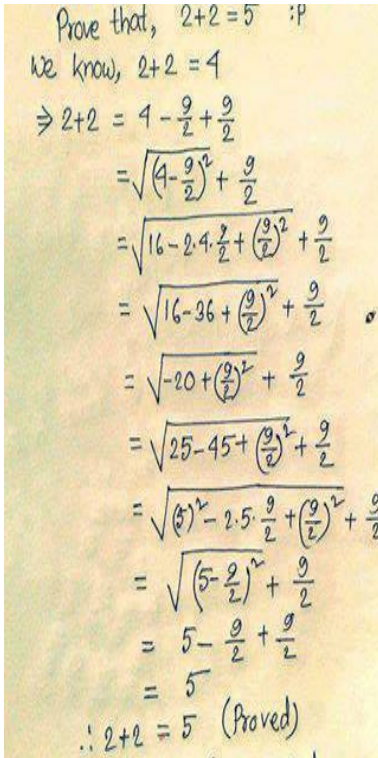 Prove that, 2+2=5 :P
We know, 2+2 = 4
⇒ 2+2 = 4 - 9/2 + 9/2
= √((4 - 9/2)²) + 9/2
= √(16 - 2·4·9/2 + (9/2)²) + 9/2
= √(16 - 36 + (9/2)²) + 9/2
= √(-20 + (9/2)²) + 9/2
= √(25 - 45 + (9/2)²) + 9/2
= √((5)² - 2·5·9/2 + (9/2)²) + 9/2
= √((5 - 9/2)²) + 9/2
= 5 - 9/2 + 9/2
= 5
∴ 2+2 = 5 (Proved)